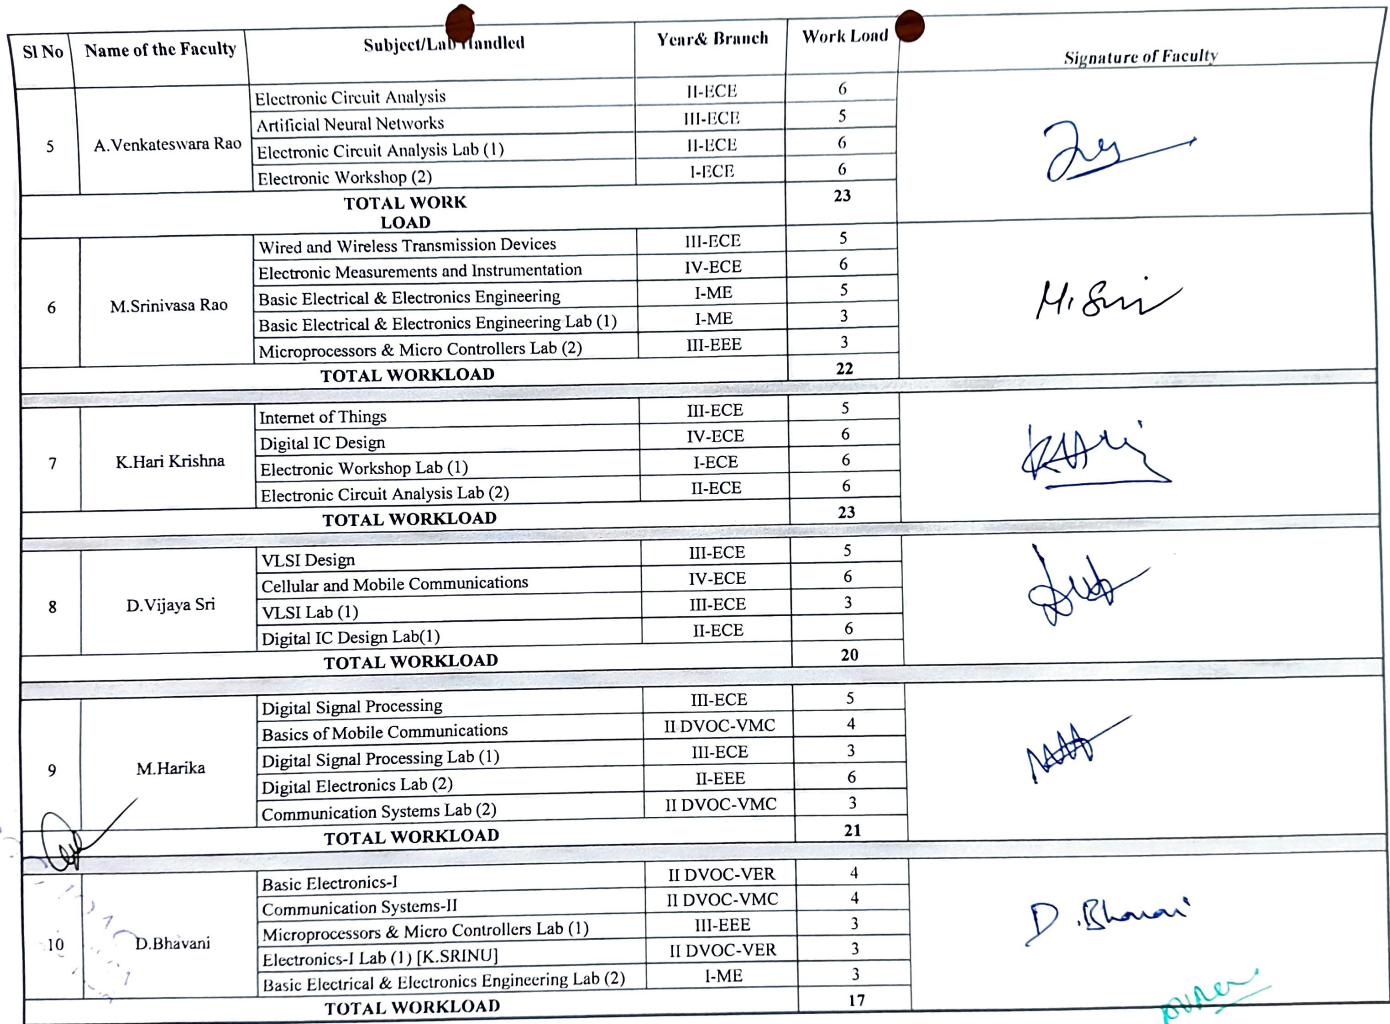 Sl No Name of the Faculty Subject/Lab Handled Year& Branch Work Load Signature of Faculty
Electronic Circuit Analysis II-ECE 6
Artificial Neural Networks III-ECE 5
5 A.Venkateswara Rao
Electronic Circuit Analysis Lab (1) II-ECE 6
Electronic Workshop (2) I-ECE 6
TOTAL WORK 23
LOAD
Wired and Wireless Transmission Devices III-ECE 5
Electronic Measurements and Instrumentation IV-ECE 6
6 M.Srinivasa Rao Basic Electrical & Electronics Engineering I-ME 5 M. Sri
Basic Electrical & Electronics Engineering Lab (1) I-ME 3
Microprocessors & Micro Controllers Lab (2) III-EEE 3
TOTAL WORKLOAD 22
Internet of Things III-ECE 5
Digital IC Design IV-ECE 6
7 K.Hari Krishna Electronic Workshop Lab (1) I-ECE 6
Electronic Circuit Analysis Lab (2) II-ECE 6
TOTAL WORKLOAD 23
VLSI Design III-ECE 5
Cellular and Mobile Communications IV-ECE 6
8 D.Vijaya Sri VLSI Lab (1) III-ECE 3
Digital IC Design Lab(1) II-ECE 6
TOTAL WORKLOAD 20
Digital Signal Processing III-ECE 5
Basics of Mobile Communications II DVOC-VMC 4
9 M.Harika Digital Signal Processing Lab (1) III-ECE 3
Digital Electronics Lab (2) II-EEE 6
Communication Systems Lab (2) II DVOC-VMC 3
TOTAL WORKLOAD 21
Basic Electronics-I II DVOC-VER 4
Communication Systems-II II DVOC-VMC 4
10 D.Bhavani Microprocessors & Micro Controllers Lab (1) III-EEE 3 D.Bhavani
Electronics-I Lab (1) [K.SRINU] II DVOC-VER 3
Basic Electrical & Electronics Engineering Lab (2) I-ME 3
TOTAL WORKLOAD 17